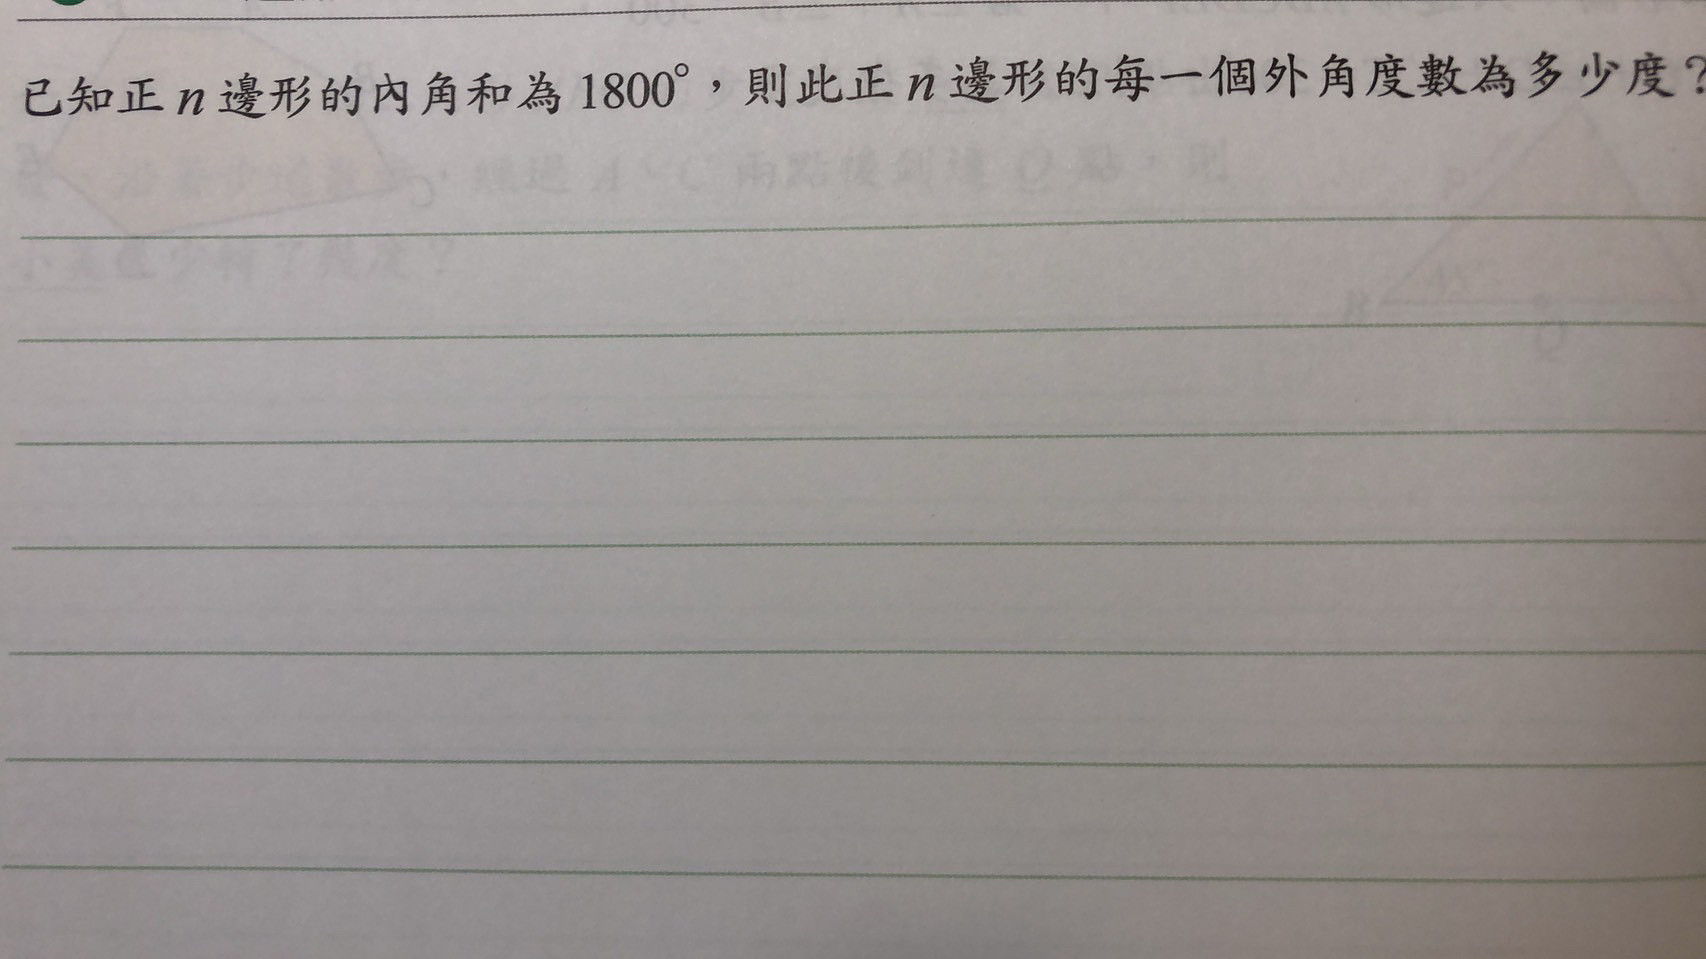 已知正 n 邊形的內角和為 1800°，則此正 n 邊形的每一個外角度數為多少度？